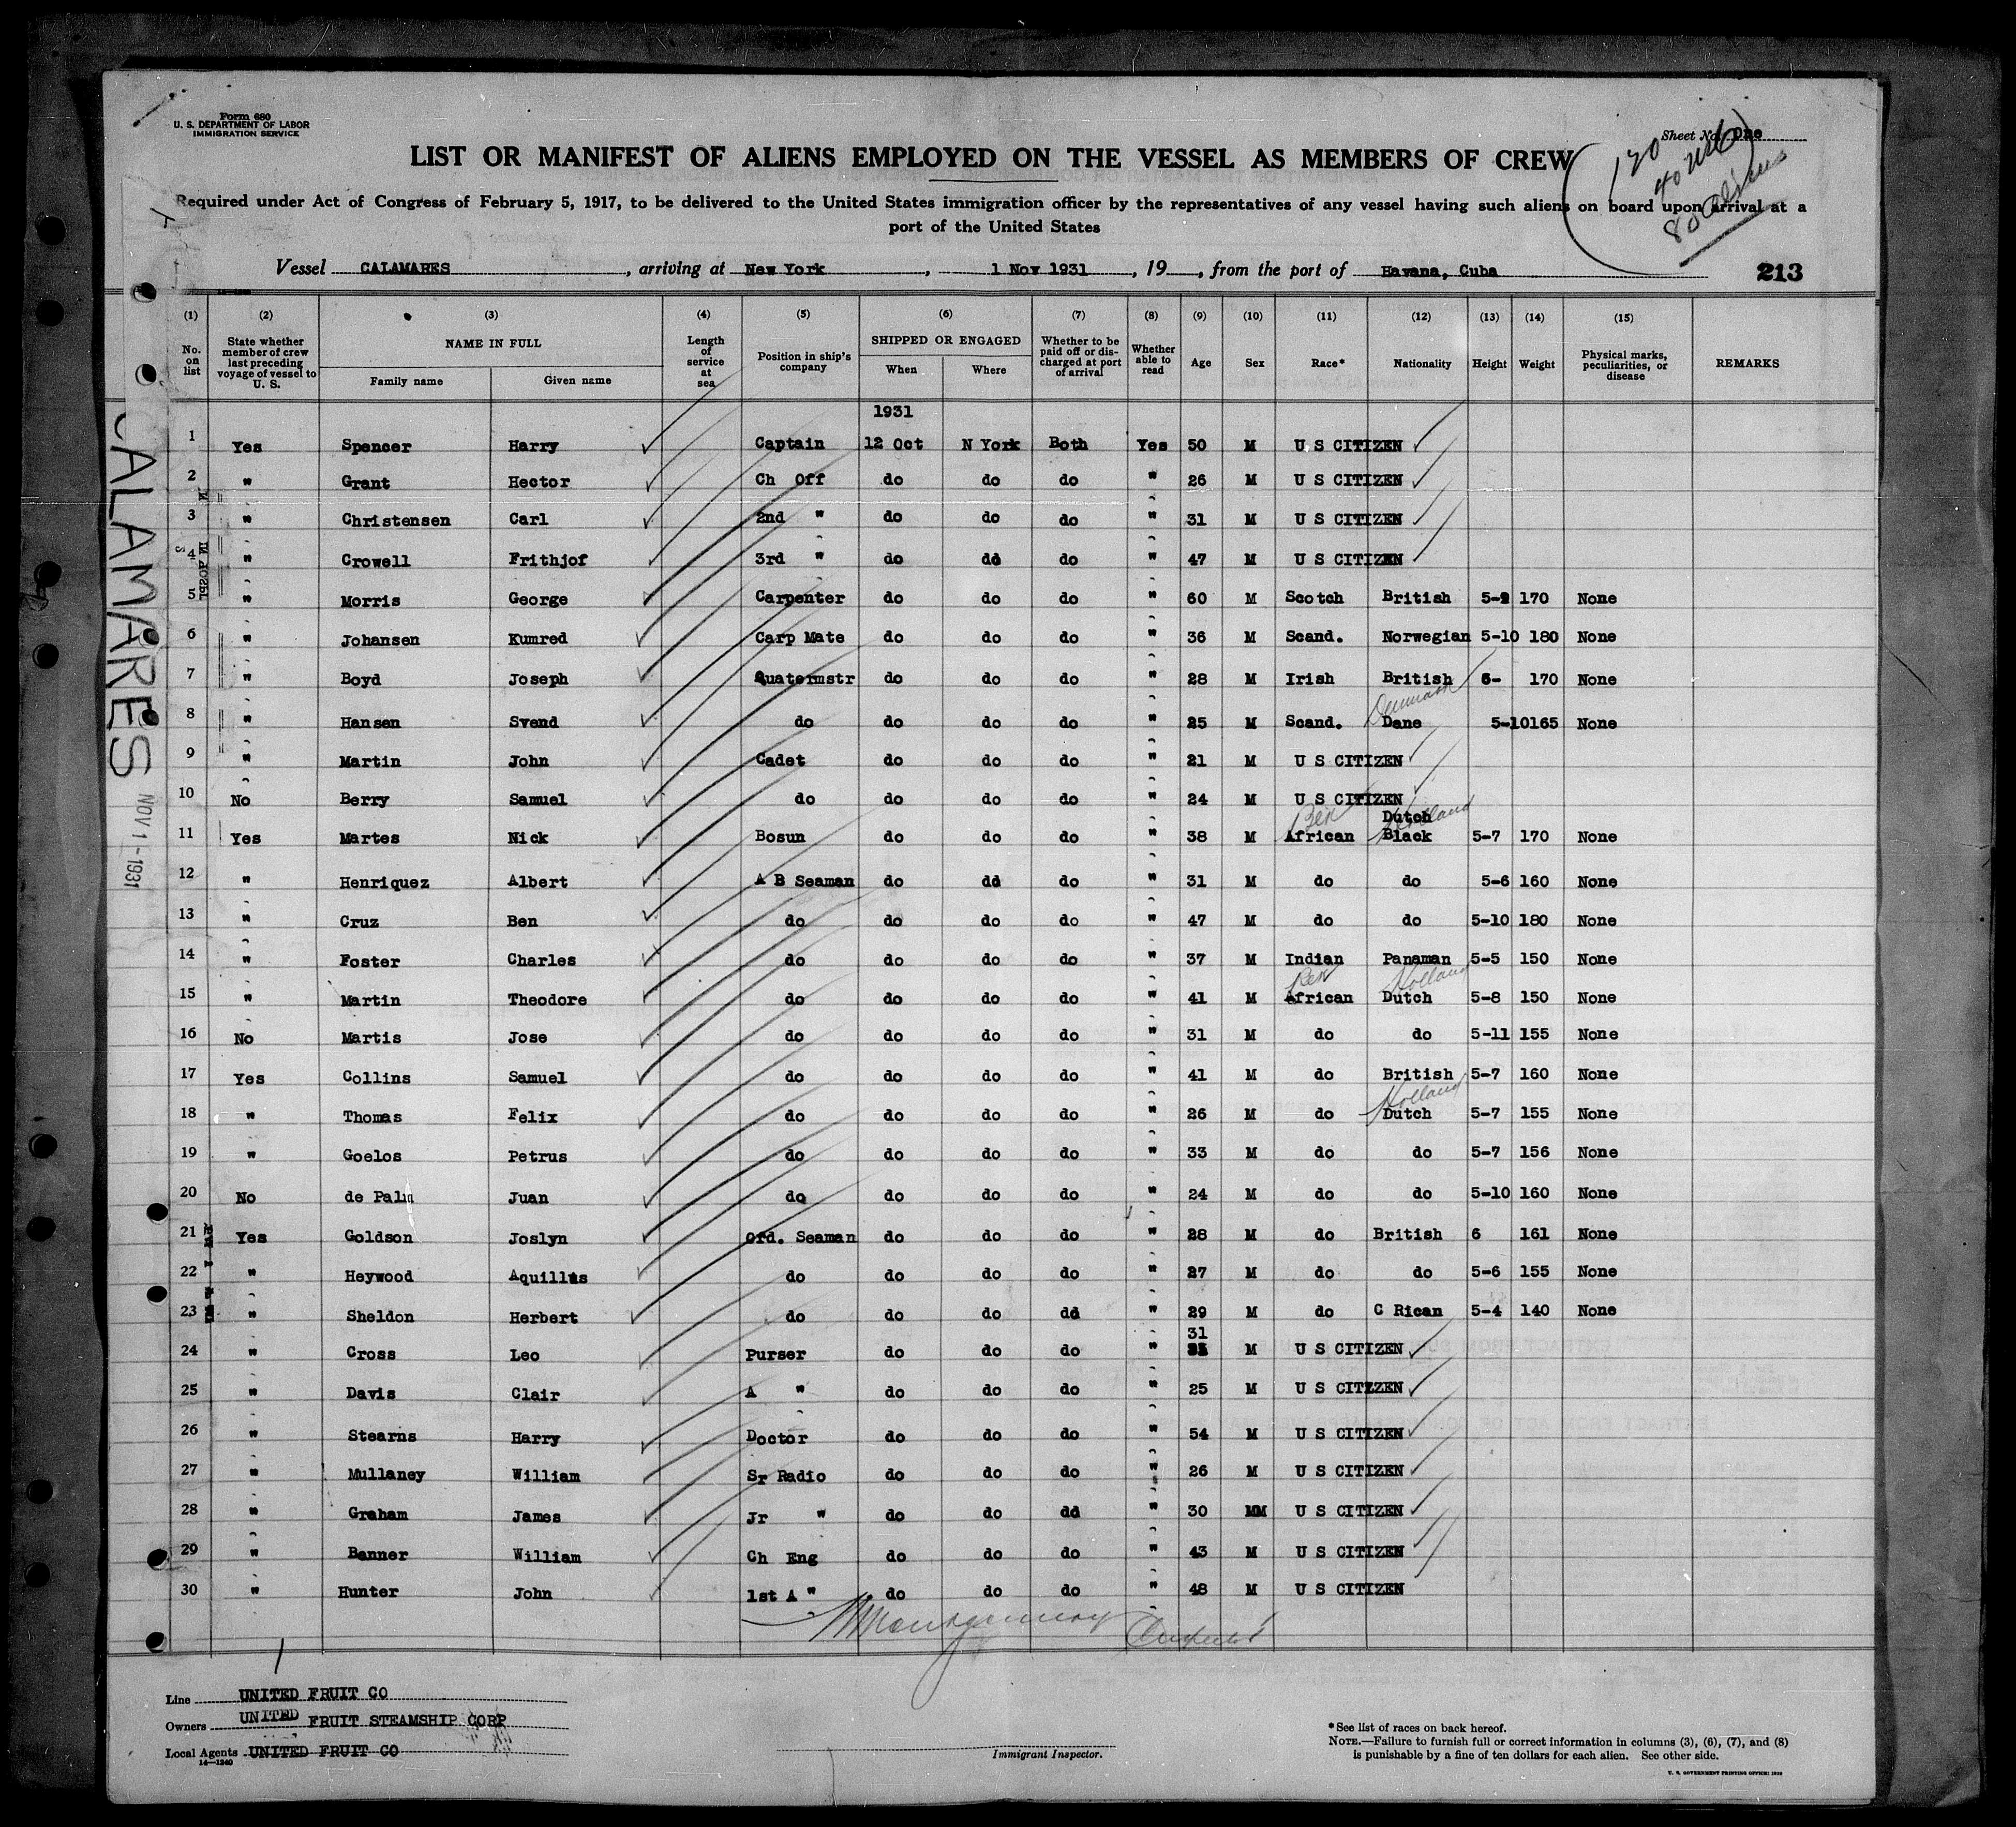 Form 680
U. S. DEPARTMENT OF LABOR
IMMIGRATION SERVICE
Sheet No. One
120
80 Aliens
LIST OR MANIFEST OF ALIENS EMPLOYED ON THE VESSEL AS MEMBERS OF CREW
Required under Act of Congress of February 5, 1917, to be delivered to the United States immigration officer by the representatives of any vessel having such aliens on board upon arrival at a
port of the United States
Vessel CALAMARES, arriving at New York, 1 Nov 1931, 19, from the port of Havana, Cuba
213
(1) (2) (3) (4) (5) (6) (7) (8) (9) (10) (11) (12) (13) (14) (15)
No. on list | State whether member of crew last preceding voyage of vessel to U. S. | NAME IN FULL | Family name | Given name | Length of service at sea | Position in ship's company | SHIPPED OR ENGAGED | When | Where | Whether to be paid off or discharged at port of arrival | Whether able to read | Age | Sex | Race* | Nationality | Height | Weight | Physical marks, peculiarities, or disease | REMARKS
1931
1 Yes Spencer Harry Captain 12 Oct N York Both Yes 50 M U S CITIZEN
2 " Grant Hector Ch Off do do do " 26 M U S CITIZEN
3 " Christensen Carl 2nd " do do do " 31 M U S CITIZEN
4 " Crowell Frithjof 3rd " do do do " 47 M U S CITIZEN
5 " Morris George Carpenter do do do " 60 M Scotch British 5-2 170 None
6 " Johansen Kumred Carp Mate do do do " 36 M Scand. Norwegian 5-10 180 None
7 " Boyd Joseph Quatermstr do do do " 28 M Irish British 6- 170 None
Denmark
8 " Hansen Svend do do do do " 25 M Scand. Dane 5-10 165 None
9 " Martin John Cadet do do do " 21 M U S CITIZEN
10 No Berry Samuel do do do do " 24 M U S CITIZEN
Dutch Holland
11 Yes Martes Nick Bosun do do do " 38 M African Black 5-7 170 None
12 " Henriquez Albert A B Seaman do do do " 31 M do do 5-6 160 None
13 " Cruz Ben do do do do " 47 M do do 5-10 180 None
14 " Foster Charles do do do do " 37 M Indian Panaman 5-5 150 None
Holland
15 " Martin Theodore do do do do " 41 M African Dutch 5-8 150 None
16 No Martis Jose do do do do " 31 M do do 5-11 155 None
17 Yes Collins Samuel do do do do " 41 M do British 5-7 160 None
Holland
18 " Thomas Felix do do do do " 26 M do Dutch 5-7 155 None
19 " Goelos Petrus do do do do " 33 M do do 5-7 156 None
20 No de Palm Juan do do do do " 24 M do do 5-10 160 None
21 Yes Goldson Joslyn Ord. Seaman do do do " 28 M do British 6 161 None
22 " Heywood Aquillas do do do do " 27 M do do 5-6 155 None
23 " Sheldon Herbert do do do dd " 29 M do C Rican 5-4 140 None
31
24 " Cross Leo Purser do do do " M U S CITIZEN
25 " Davis Clair A " do do do " 25 M U S CITEZEN
26 " Stearns Harry Doctor do do do " 54 M U S CITIZEN
27 " Mullaney William Sr Radio do do do " 26 M U S CITIZEN
28 " Graham James Jr " do do dd " 30 MM U S CITIZEN
29 " Banner William Ch Eng do do do " 43 M U S CITIZEN
30 " Hunter John 1st A " do do do " 48 M U S CITIZEN
Montgomery
CALAMARES
NOV 1 - 1931
Line UNITED FRUIT CO
Owners UNITED FRUIT STEAMSHIP CORP
Local Agents UNITED FRUIT CO
14—1240
Immigrant Inspector.
*See list of races on back hereof.
NOTE.—Failure to furnish full or correct information in columns (3), (6), (7), and (8)
is punishable by a fine of ten dollars for each alien. See other side.